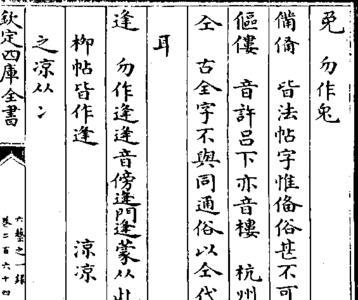 兎 勿作兔
備俻 皆法帖字惟俻俗甚不可
傴僂 音許吕下亦音樓 杭州
仝 古全字不與同通俗以仝代
耳
逄 勿作逢逄音傍逢門逢蒙从此
柳帖皆作逄 涼凉
之涼从冫
欽定四庫全書
六藝之一録
卷二百六十四